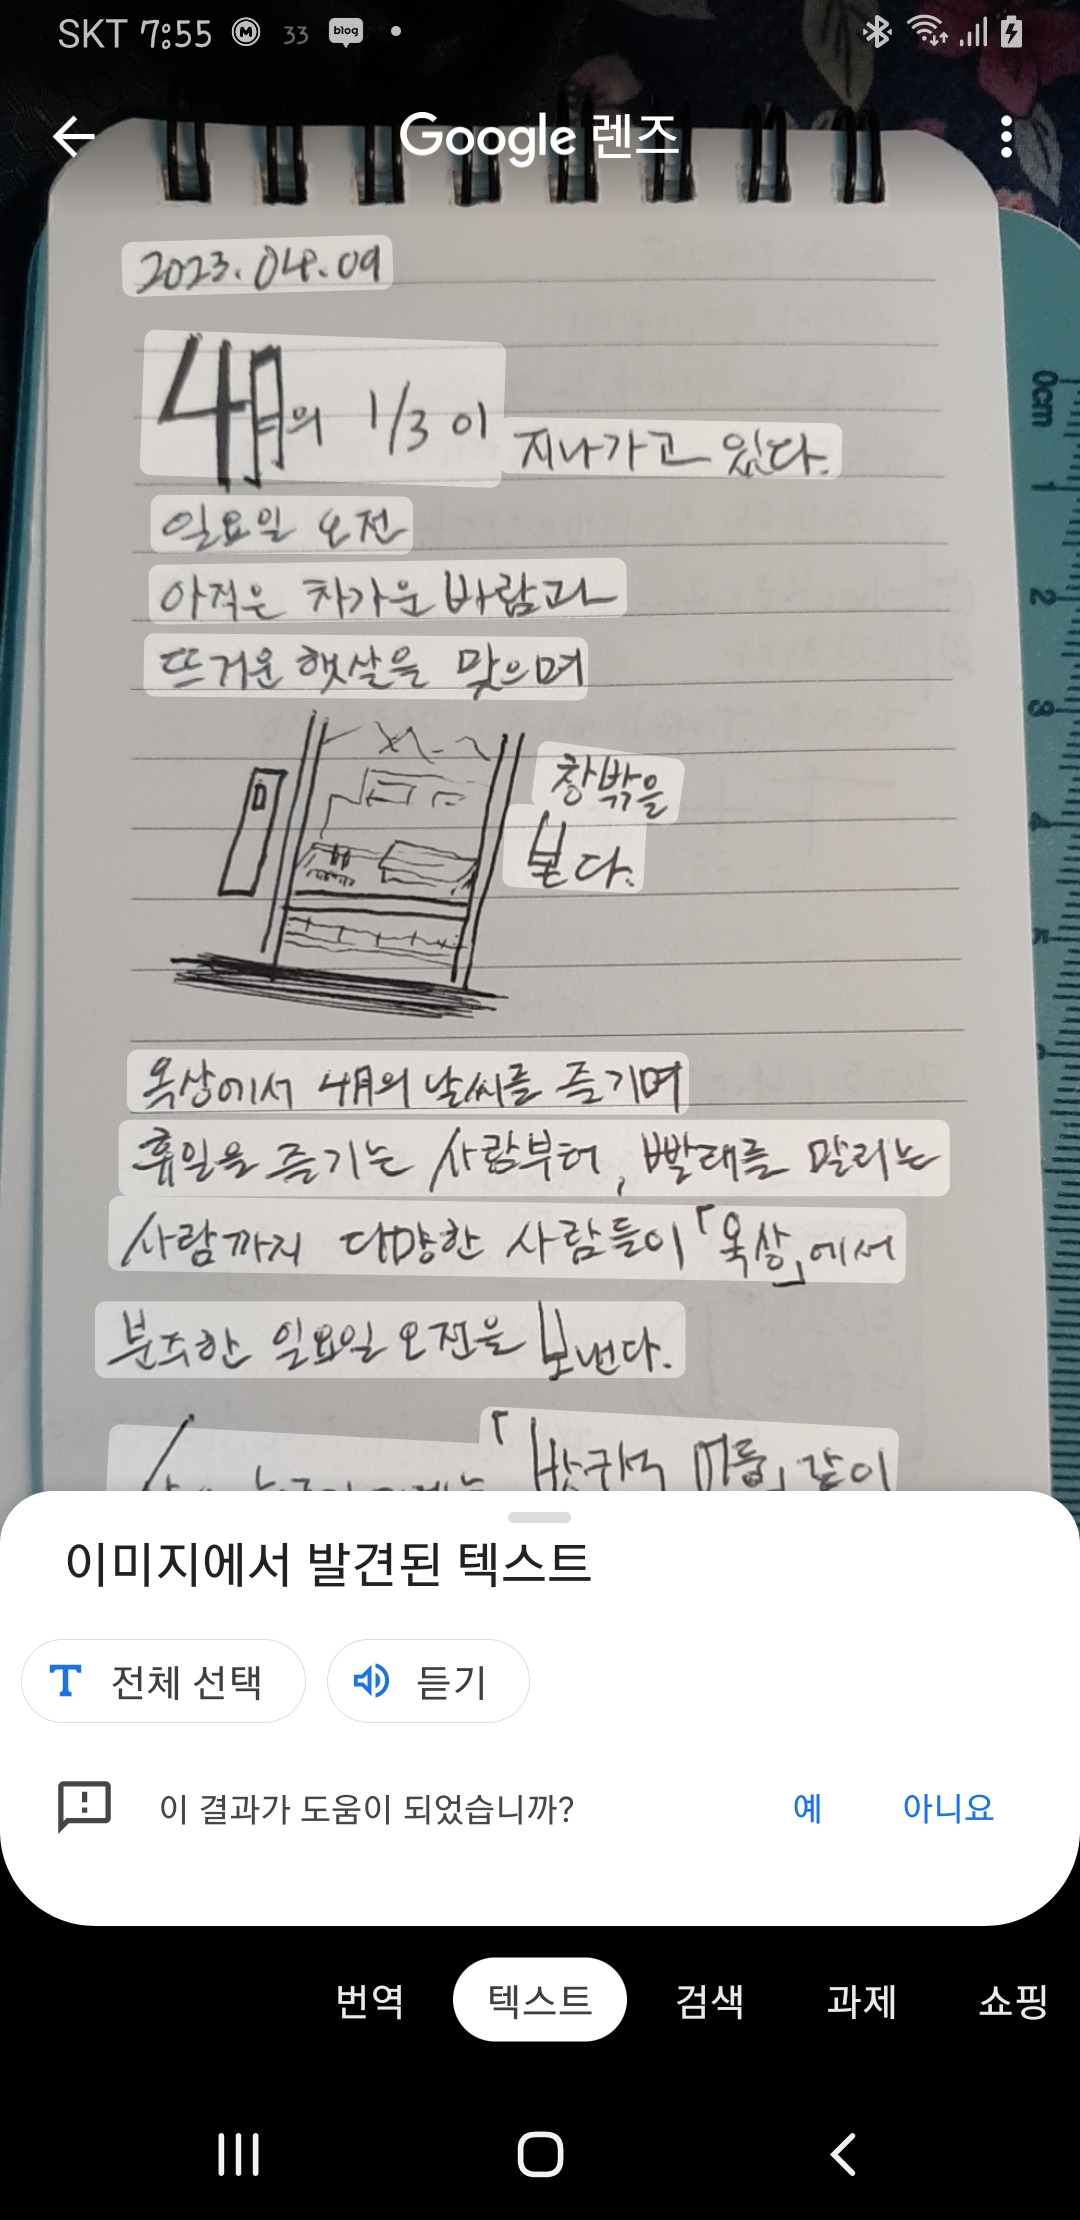 SKT 7:55 M 33 blog
Google 렌즈
2023.04.09
4月의 1/3이 지나가고 있다.
일요일 오전
아직은 차가운 바람과
뜨거운 햇살을 맞으며
창밖을
본다.
옥상에서 4月의 날씨를 즐기며
휴일을 즐기는 사람부터, 빨래를 말리는
사람까지 다양한 사람들이 「옥상」에서
분주한 일요일 오전을 보낸다.
「방구석 같이
0cm
1
2
3
4
5
이미지에서 발견된 텍스트
전체 선택 듣기
이 결과가 도움이 되었습니까? 예 아니요
번역 텍스트 검색 과제 쇼핑